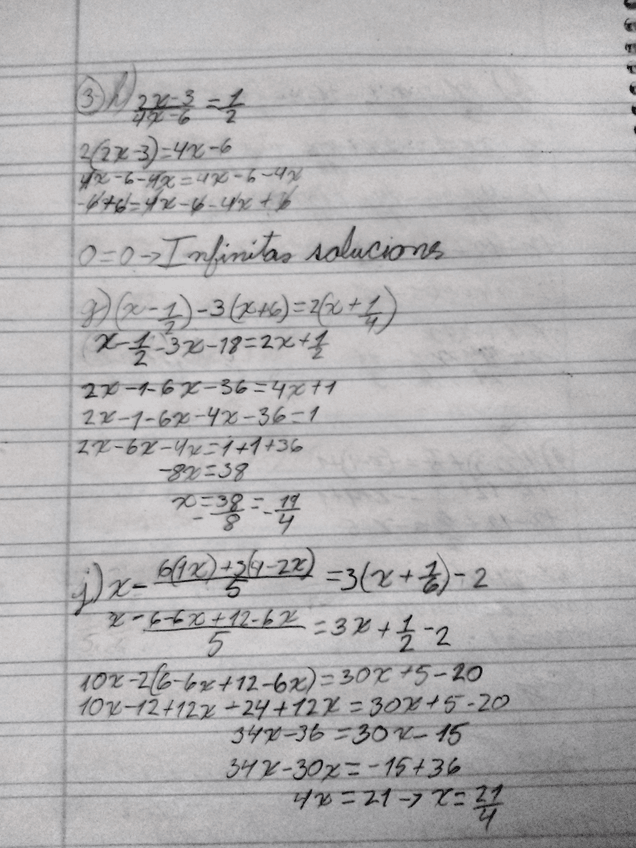 ③ h) (2x-3)/(4x-6) = 1/2
2(2x-3)=4x-6
4x-6-4x=4x-6-4x
-6+6=4x-6-4x+6
0=0→Infinitas solucions
g) (x-1/2)-3(x+6)=2(x+1/4)
x-1/2-3x-18=2x+1/2
2x-1-6x-36=4x+1
2x-1-6x-4x-36=1
2x-6x-4x=1+1+36
-8x=38
x=-38/8=-19/4
j) x-(6(1x)+3(4-2x))/5=3(x+1/6)-2
x-(6-6x+12-6x)/5=3x+1/2-2
10x-2(6-6x+12-6x)=30x+5-20
10x-12+12x-24+12x=30x+5-20
34x-36=30x-15
34x-30x=-15+36
4x=21→x=21/4